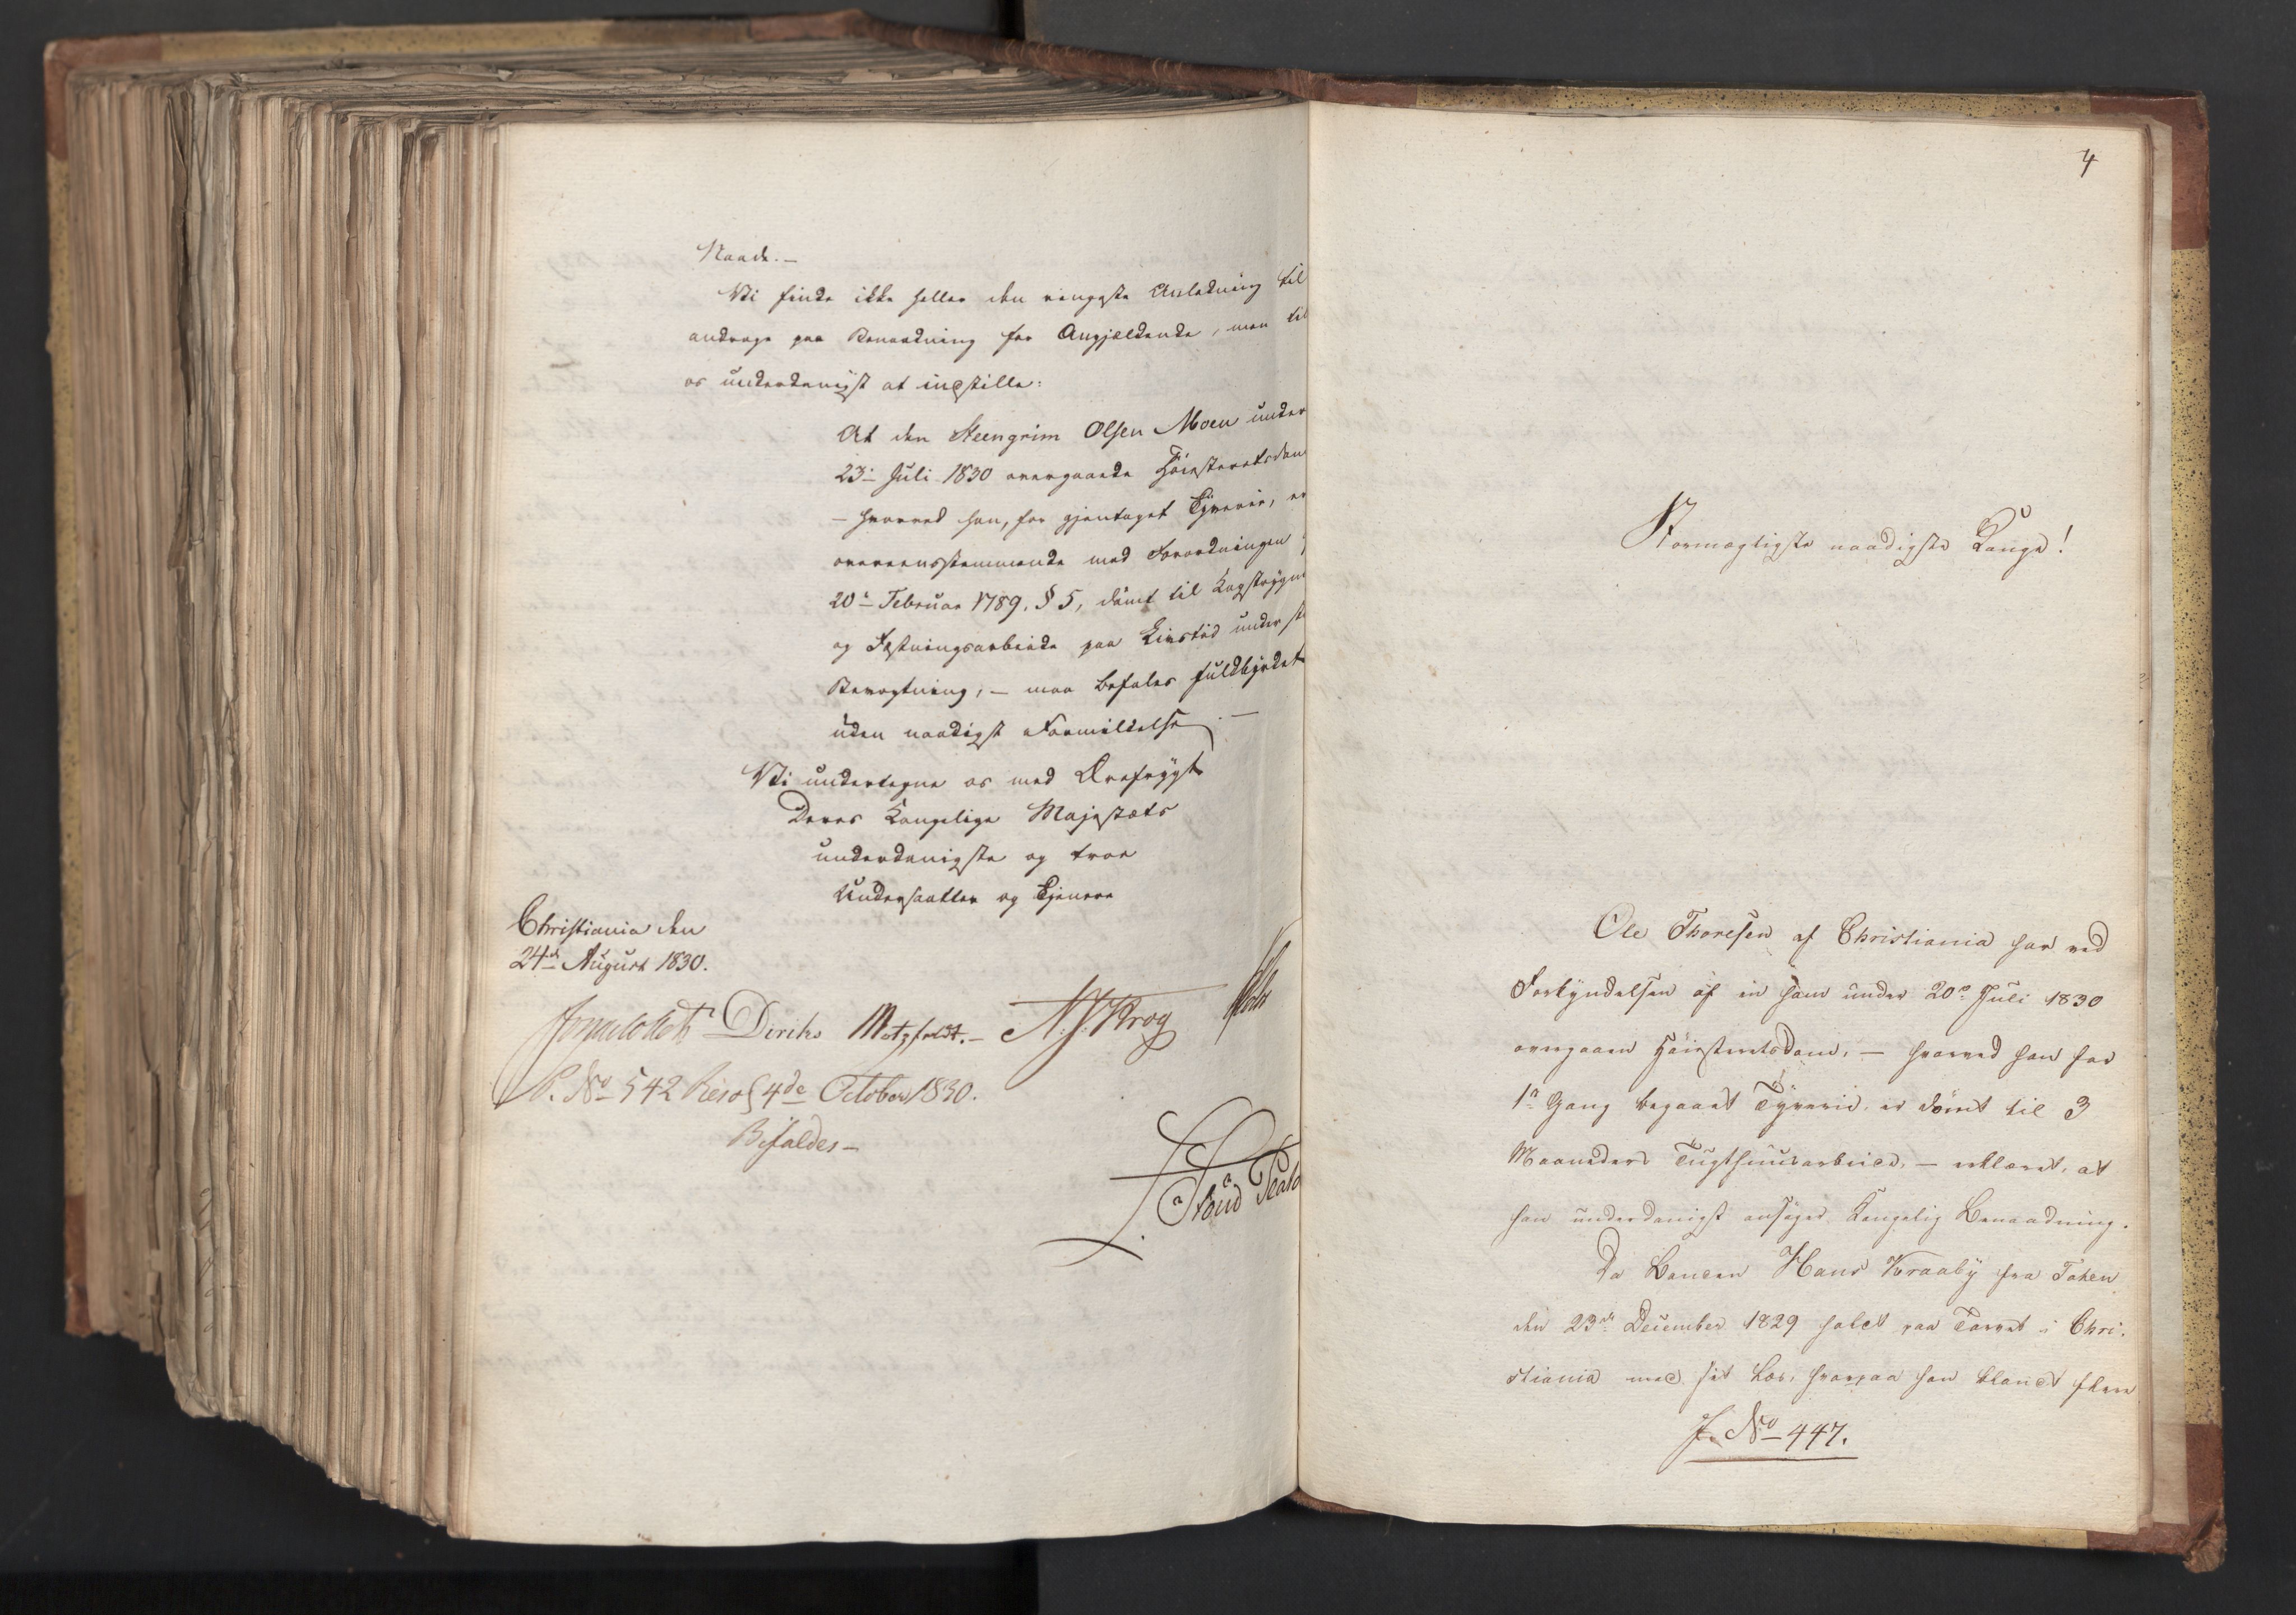 Naade.-
Vi finde ikke heller den ringeste Anledning til
andrage paa Benaadning for Angjældende, men til
os underdanigst at indstille:
At den Steengrim Olsen Moen under
23de Juli 1830 overgaaede Høiesteretsdom
- hvorved han, for gjentaget Tyverie, er
overeensstemmende med Forordningen
20de Februar 1789, § 5, dømt til Kagstrygn
og Fæstningsarbeide paa Livstid under
Bevogtning, - maa befales fuldbyrdet
uden naadigst Formildelse. -
Vi undertegne os med Ærefrygt
Deres Kongelige Majestæts
underdanigste og troe
Undersaatter og Tjenere
Christiania den
24de August 1830.
Diriks Motzfeldt.- N. J. Krog
P. No 542 Resol 4de October 1830.
Bifaldes -
4
Stormægtigste naadigste Konge!
Ole Thoresen af Christiania har ved
Forkyndelsen af en ham under 20de Juli 1830
overgaaen Høiesteretsdom, - hvorved han for
1ste Gang begaaet Tyverie, er dømt til 3
Maaneders Tugthuusarbeide, - erklæret, at
han underdanigst ansøger Kongelig Benaadning.
Da Bonden Hans Kraaby fra Toten
den 23de December 1829 holdt paa Torvet i Chri-
stiania med sit Læs, hvorpaa han blandt flere
J. No 447.